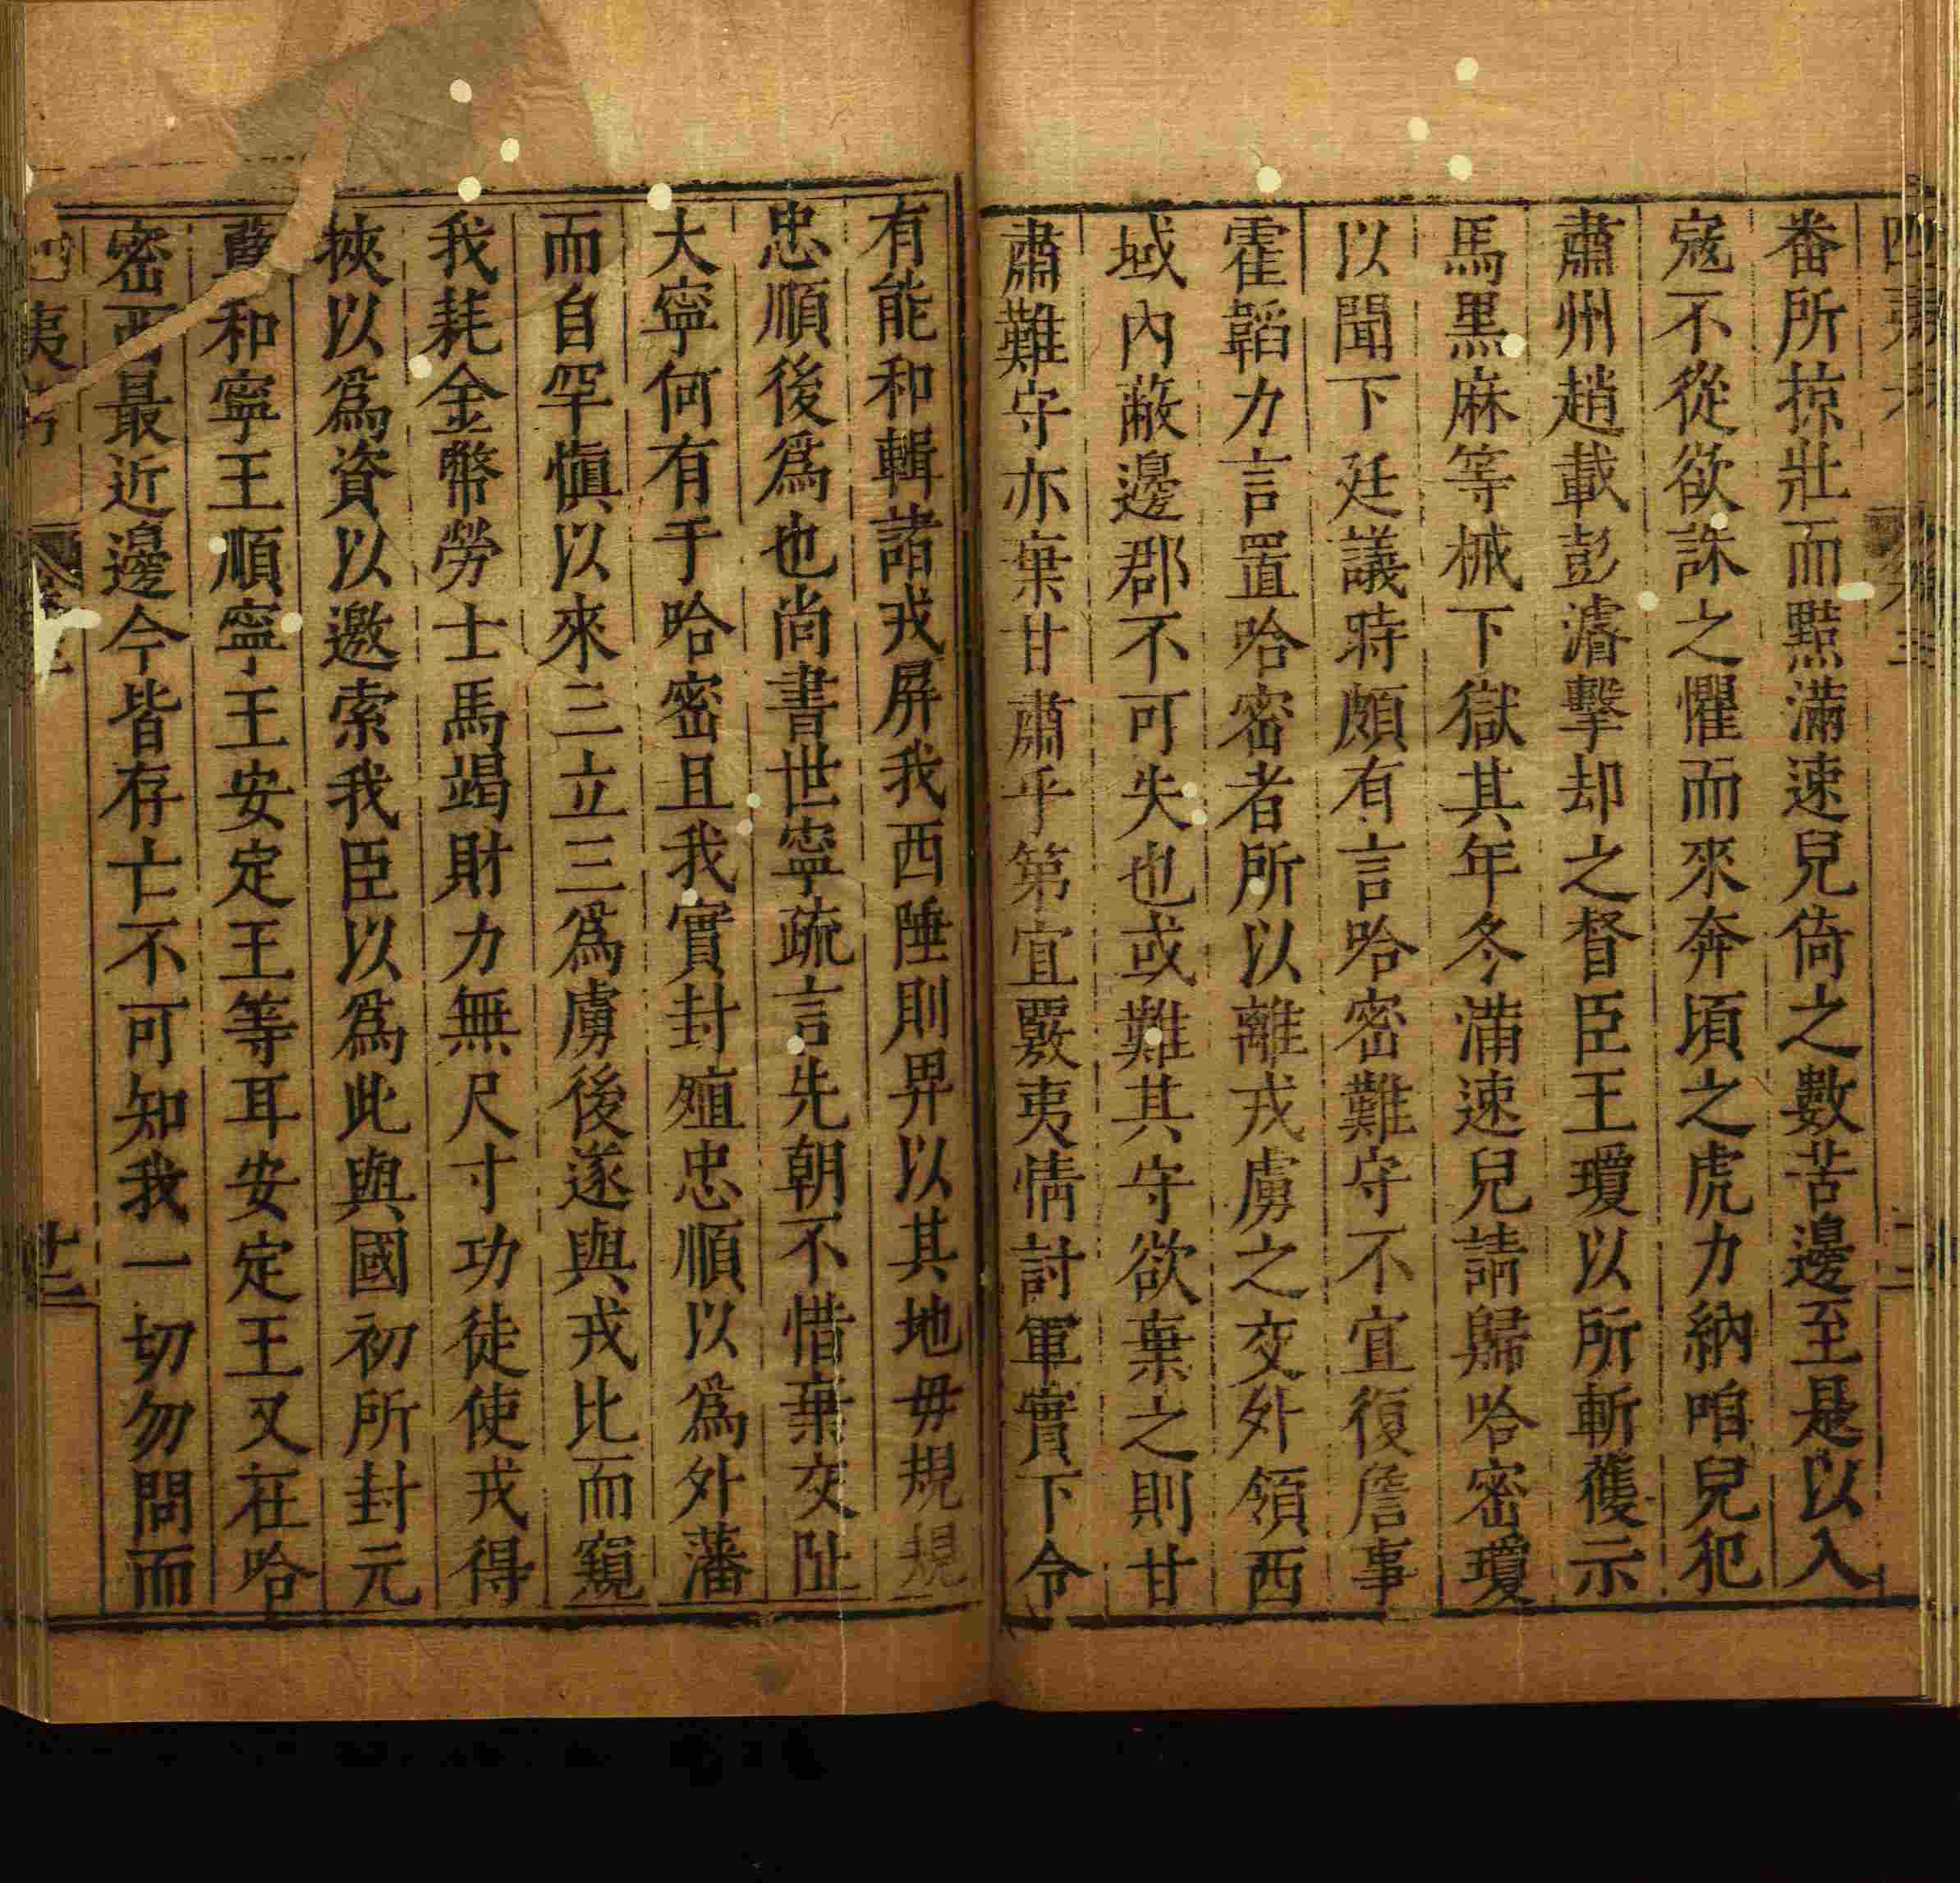 番所掠壯而黠滿速兒倚之數苦邊至是以入
寇不從欲誅之懼而來奔頃之虎力納咱兒犯
肅州趙載彭濬擊却之督臣王瓊以所斬獲示
馬黑麻等械下獄其年冬滿速兒請歸哈密瓊
以聞下廷議時頗有言哈密難守不宜復詹事
霍韜力言置哈密者所以離戎虜之交外領西
域內蔽邊郡不可失也或難其守欲棄之則甘
肅難守亦棄甘肅乎第宜覈夷情討軍實下令
有能和輯諸戎屏我西陲則畀以其地毋規規
忠順後爲也尚書世寧疏言先朝不惜棄交阯
大寧何有于哈密且我實封殖忠順以爲外藩
而自罕慎以來三立三爲虜後遂與戎比而窺
我耗金幣勞士馬竭財力無尺寸功徒使戎得
挾以爲資以邀索我臣以爲此與國初所封元
和寧王順寧王安定王等耳安定王又在哈
密西最近邊今皆存亡不可知我一切勿問而
夷
廿二